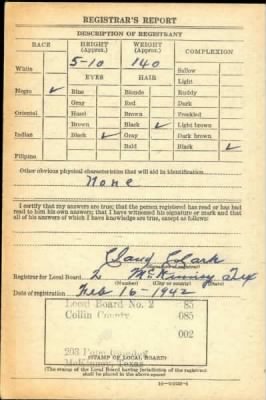 REGISTRAR'S REPORT
DESCRIPTION OF REGISTRANT
RACE HEIGHT (Approx.) WEIGHT (Approx.) COMPLEXION
White 5-10 140 Sallow
EYES HAIR Light
Negro ✓ Blue Blonde Ruddy
Gray Red Dark
Oriental Hazel Brown Freckled
Brown Black ✓ Light brown
Indian Black ✓ Gray Dark brown
Bald Black ✓
Filipino
Other obvious physical characteristics that will aid in identification
None
I certify that my answers are true; that the person registered has read or has had
read to him his own answers; that I have witnessed his signature or mark and that
all of his answers of which I have knowledge are true, except as follows:
Claud Clark
Registrar for Local Board 2 McKinney Tex
(Number) (City or county) (State)
Date of registration Feb 16-1942
Local Board No. 2 85
Collin County 085
002
203
McKinney, Texas
(STAMP OF LOCAL BOARD)
(The stamp of the Local Board having jurisdiction of the registrant
shall be placed in the above space)